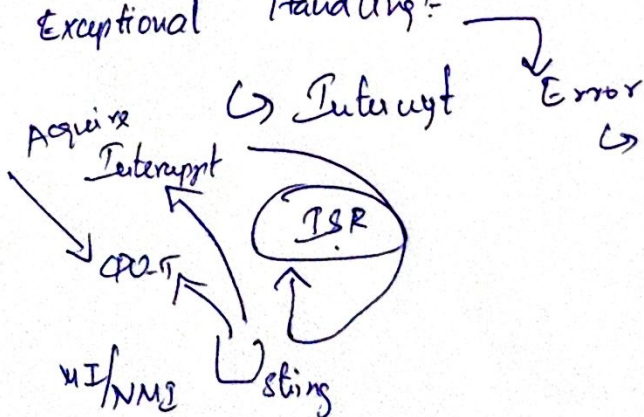 Exceptional Handling:-
Error
↳ Interrupt
↳
Acquire
Interuppt
ISR
CPU-T
MI/NMI
String